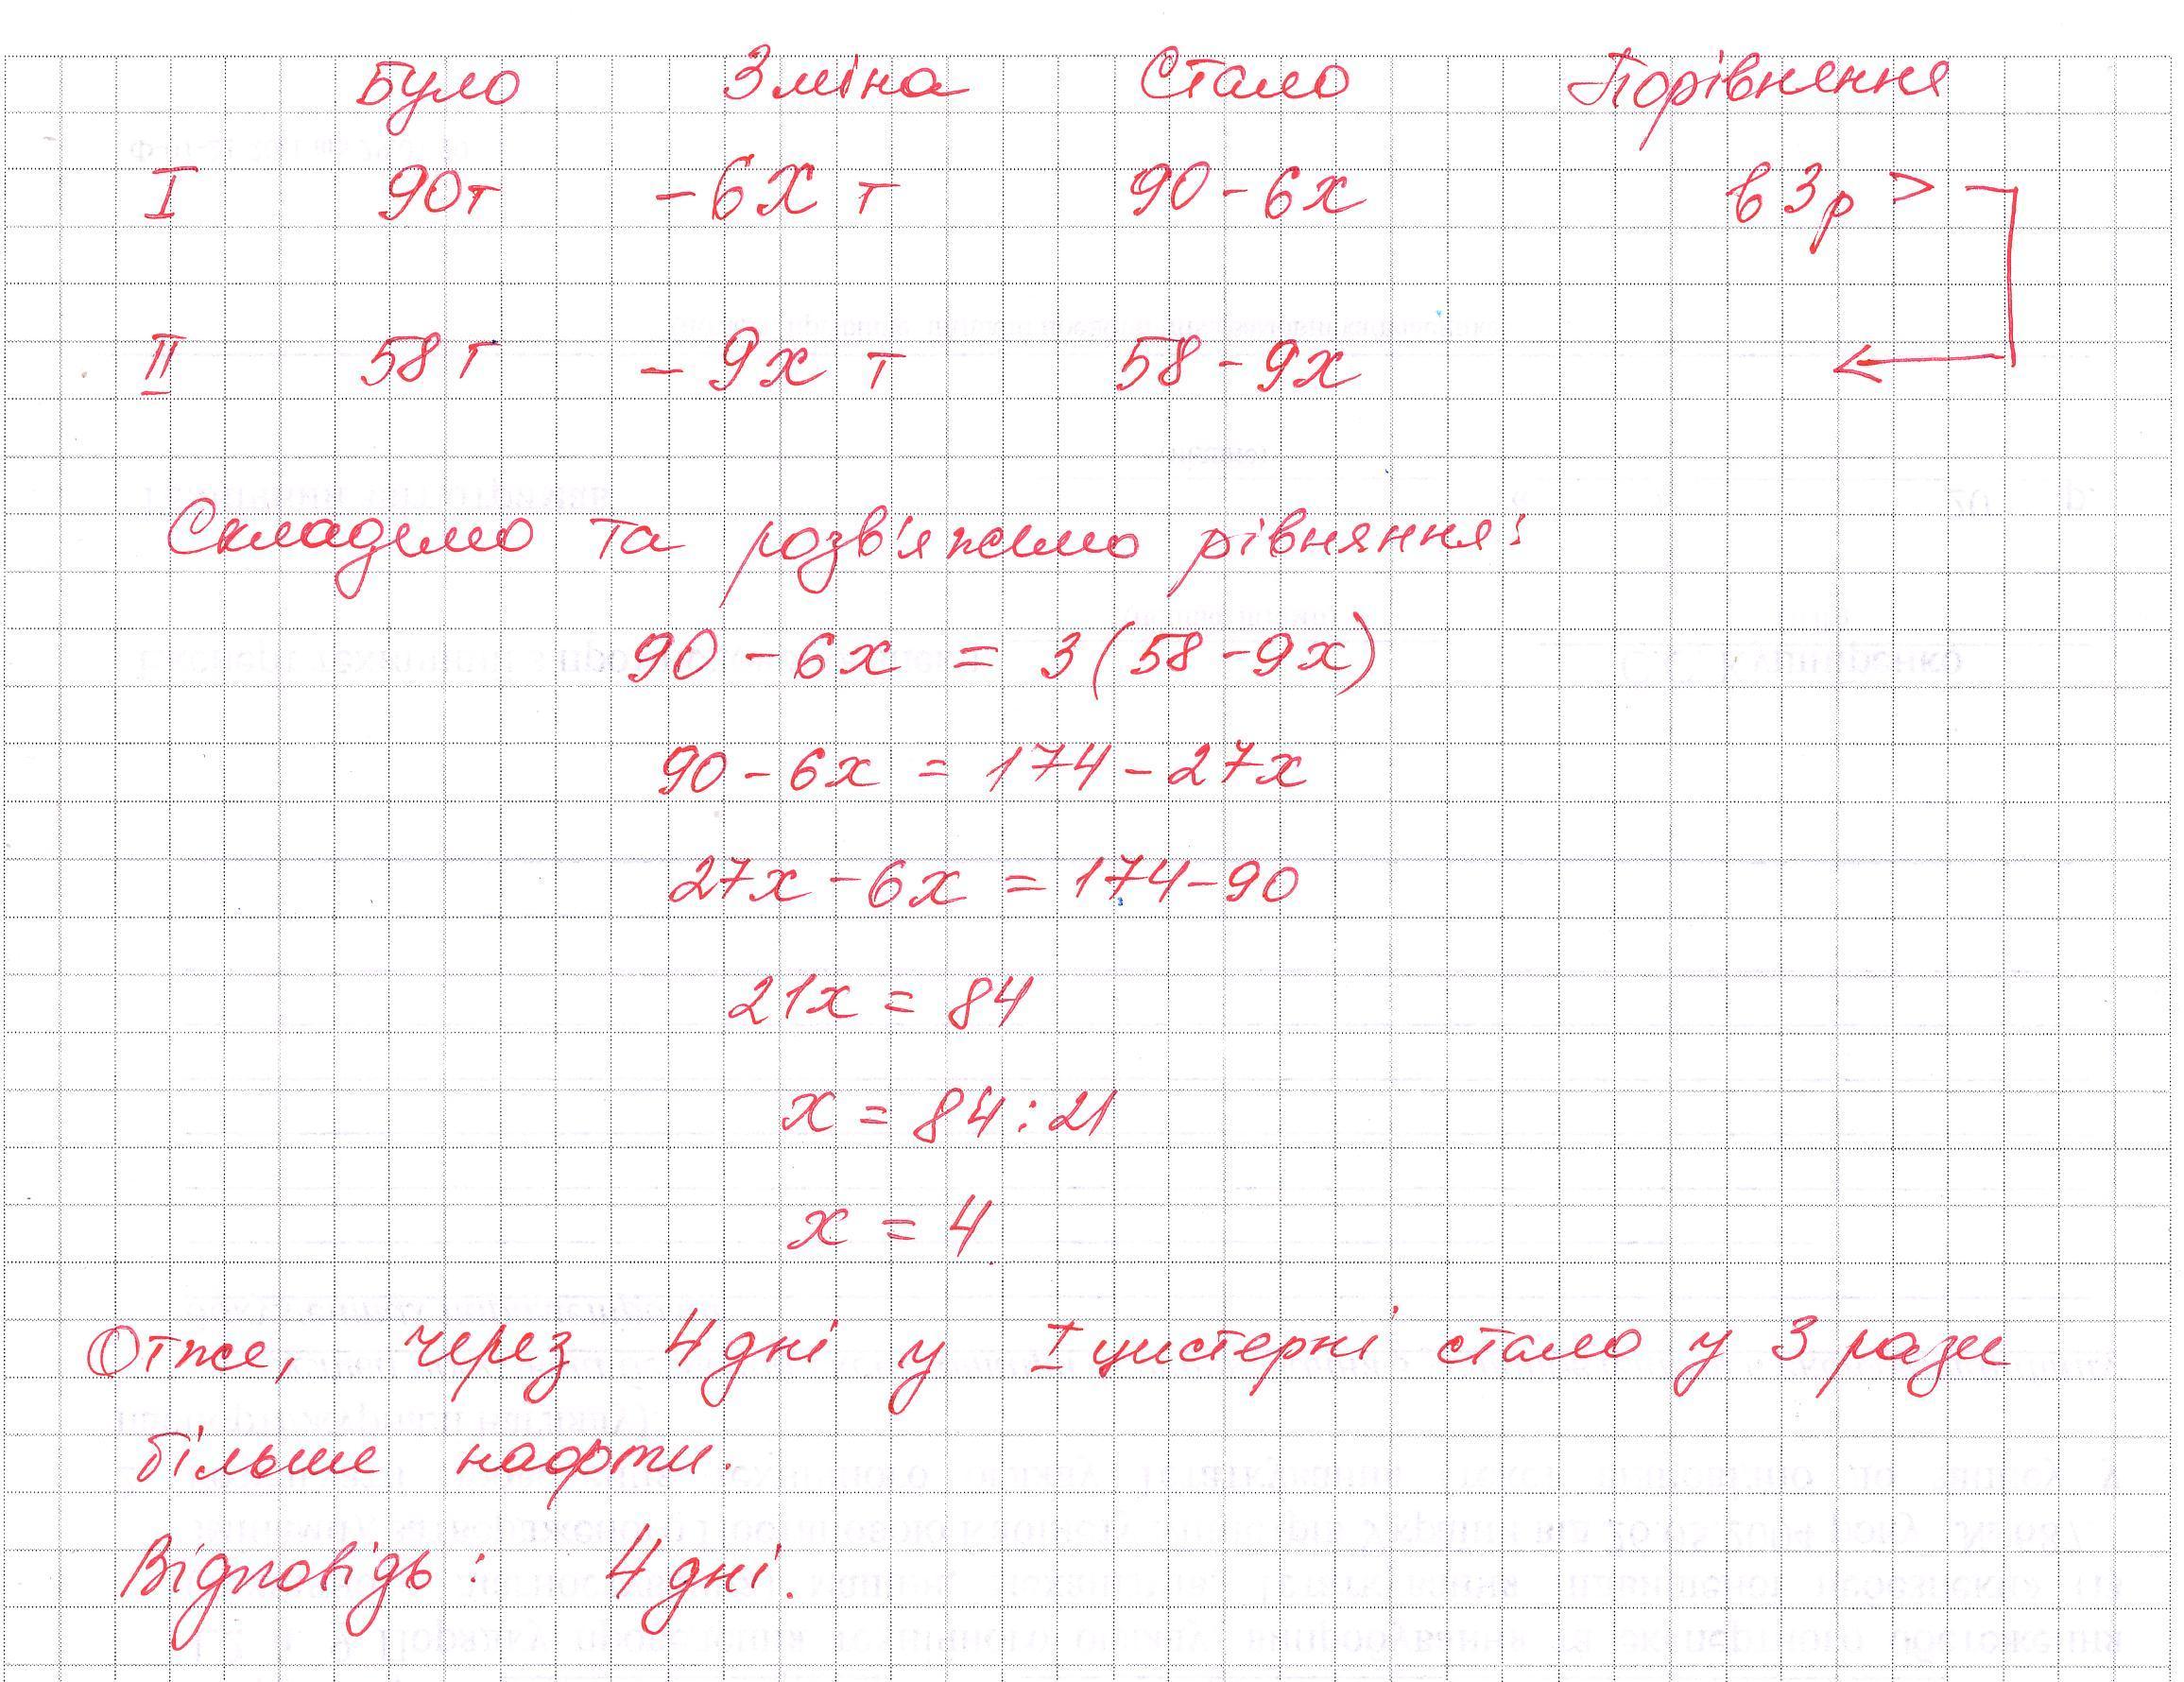 Було Зміна Стало Порівняння
I 90т -6х т 90-6х в 3р >
II 58т -9х т 58-9х
Складемо та розв'яжемо рівняння:
90-6х = 3(58-9х)
90-6х = 174-27х
27х-6х = 174-90
21х = 84
х = 84:21
х = 4
Отже, через 4 дні у I цистерні стало у 3 рази
більше нафти.
Відповідь: 4 дні.